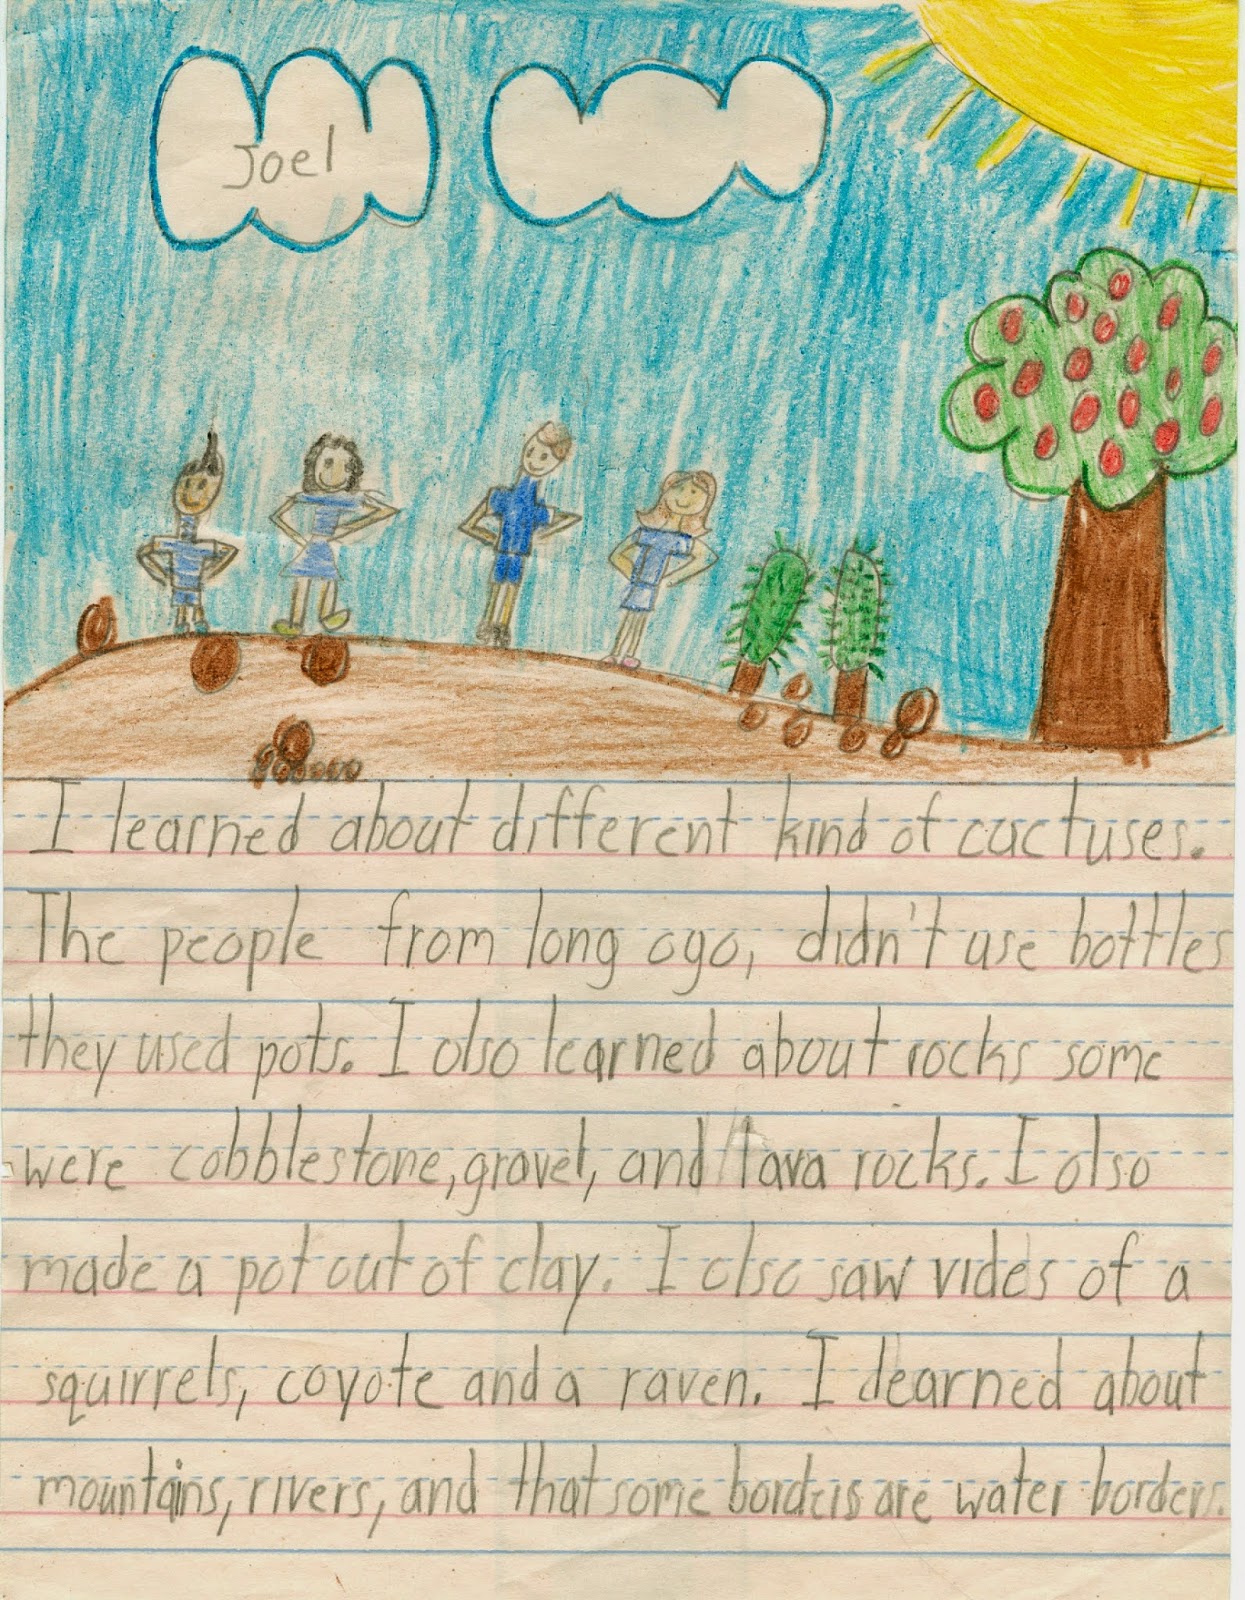 Joel
I learned about different kind of cactuses.
The people from long ogo, didn't use bottles
they used pots. I olso learned about rocks some
were cobblestone, gravel, and lava rocks. I olso
made a pot out of clay. I olso saw vides of a
squirrels, coyote and a raven. I learned about
mountains, rivers, and that some borders are water borders.